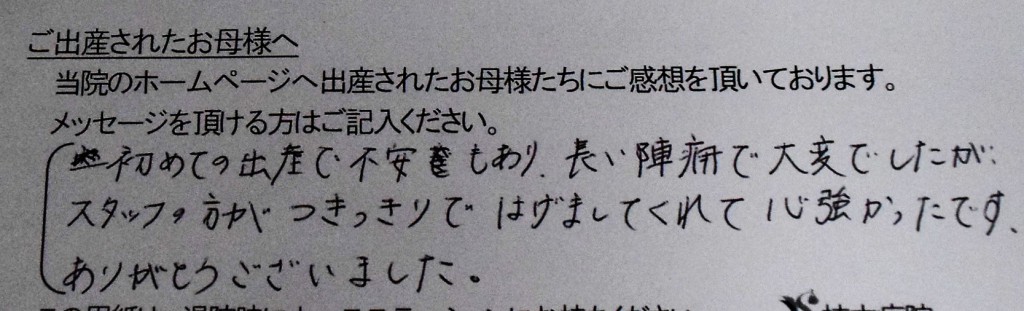 ご出産されたお母様へ
当院のホームページへ出産されたお母様たちにご感想を頂いております。
メッセージを頂ける方はご記入ください。
初めての出産で不安もあり、長い陣痛で大変でしたが、
スタッフの方がつきっきりではげましてくれて心強かったです、
ありがとうございました。